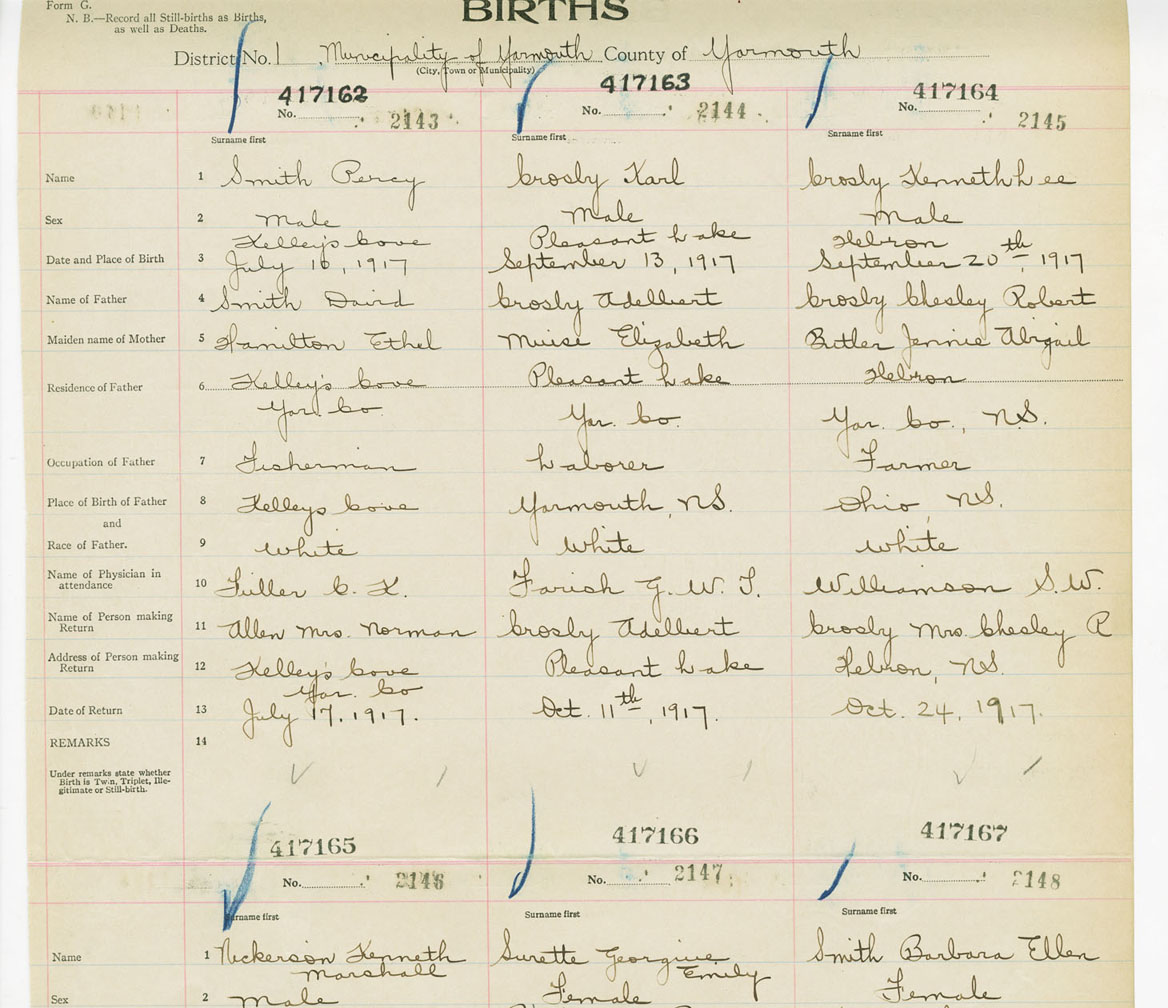 Form G.
BIRTHS
N. B.—Record all Still-births as Births,
as well as Deaths.
District No. 1 , Municipality of Yarmouth County of Yarmouth
(City, Town or Municipality)
417162 417163 417164
No. 2143 No. 2144 No. 2145
Surname first Surname first Surname first
Name 1 Smith Percy Crosby Karl Crosby Kenneth Lee
Sex 2 Male Male Male
Kelley's Cove Pleasant Lake Hebron
Date and Place of Birth 3 July 16, 1917 September 13, 1917 September 20th, 1917
Name of Father 4 Smith David Crosby Adelbert Crosby Chesley Robert
Maiden name of Mother 5 Hamilton Ethel Muise Elizabeth Butler Jennie Abigail
Residence of Father 6 Kelley's Cove Pleasant Lake Hebron
Yar. Co. Yar. Co. Yar. Co., N.S.
Occupation of Father 7 Fisherman Laborer Farmer
Place of Birth of Father 8 Kelleys Cove Yarmouth, NS. Ohio, NS.
and
Race of Father. 9 White White White
Name of Physician in
attendance 10 Fuller C. K. Farish G. W. T. Williamson S. W.
Name of Person making
Return 11 Allen Mrs. Norman Crosby Adelbert Crosby Mrs. Chesley R
Address of Person making
Return 12 Kelley's Cove Pleasant Lake Hebron, NS.
Yar. Co
Date of Return 13 July 17, 1917. Oct. 11th, 1917. Oct. 24, 1917.
REMARKS 14
Under remarks state whether
Birth is Twin, Triplet, Ille-
gitimate or Still-birth.
417165 417166 417167
No. 2146 No. 2147 No. 2148
Surname first Surname first Surname first
Name 1 Nickerson Kenneth Surette Georgine Smith Barbara Ellen
Marshall Emily
Sex 2 Male Female Female